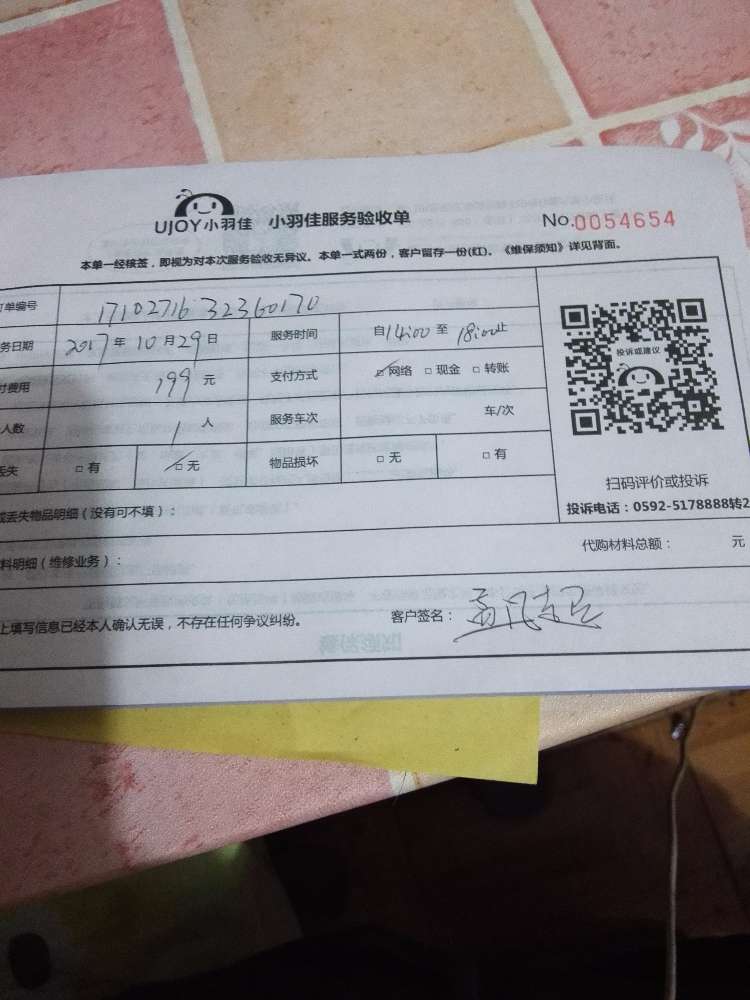 UJOY小羽佳 小羽佳服务验收单 No.0054654
本单一经核签，即视为对本次服务验收无异议。本单一式两份，客户留存一份(红)。《维保须知》详见背面。
单编号 17102716 32360170
务日期 2017年10月29日 服务时间 自14:00至18:00止
费用 199元 支付方式 网络 现金 转账
人数 1人 服务车次 车/次
丢失 有 无 物品损坏 无 有
投诉或建议
扫码评价或投诉
投诉电话：0592-5178888转2
丢失物品明细（没有可不填）：
料明细（维修业务）： 代购材料总额： 元
上填写信息已经本人确认无误，不存在任何争议纠纷。 客户签名：孟
维保须知